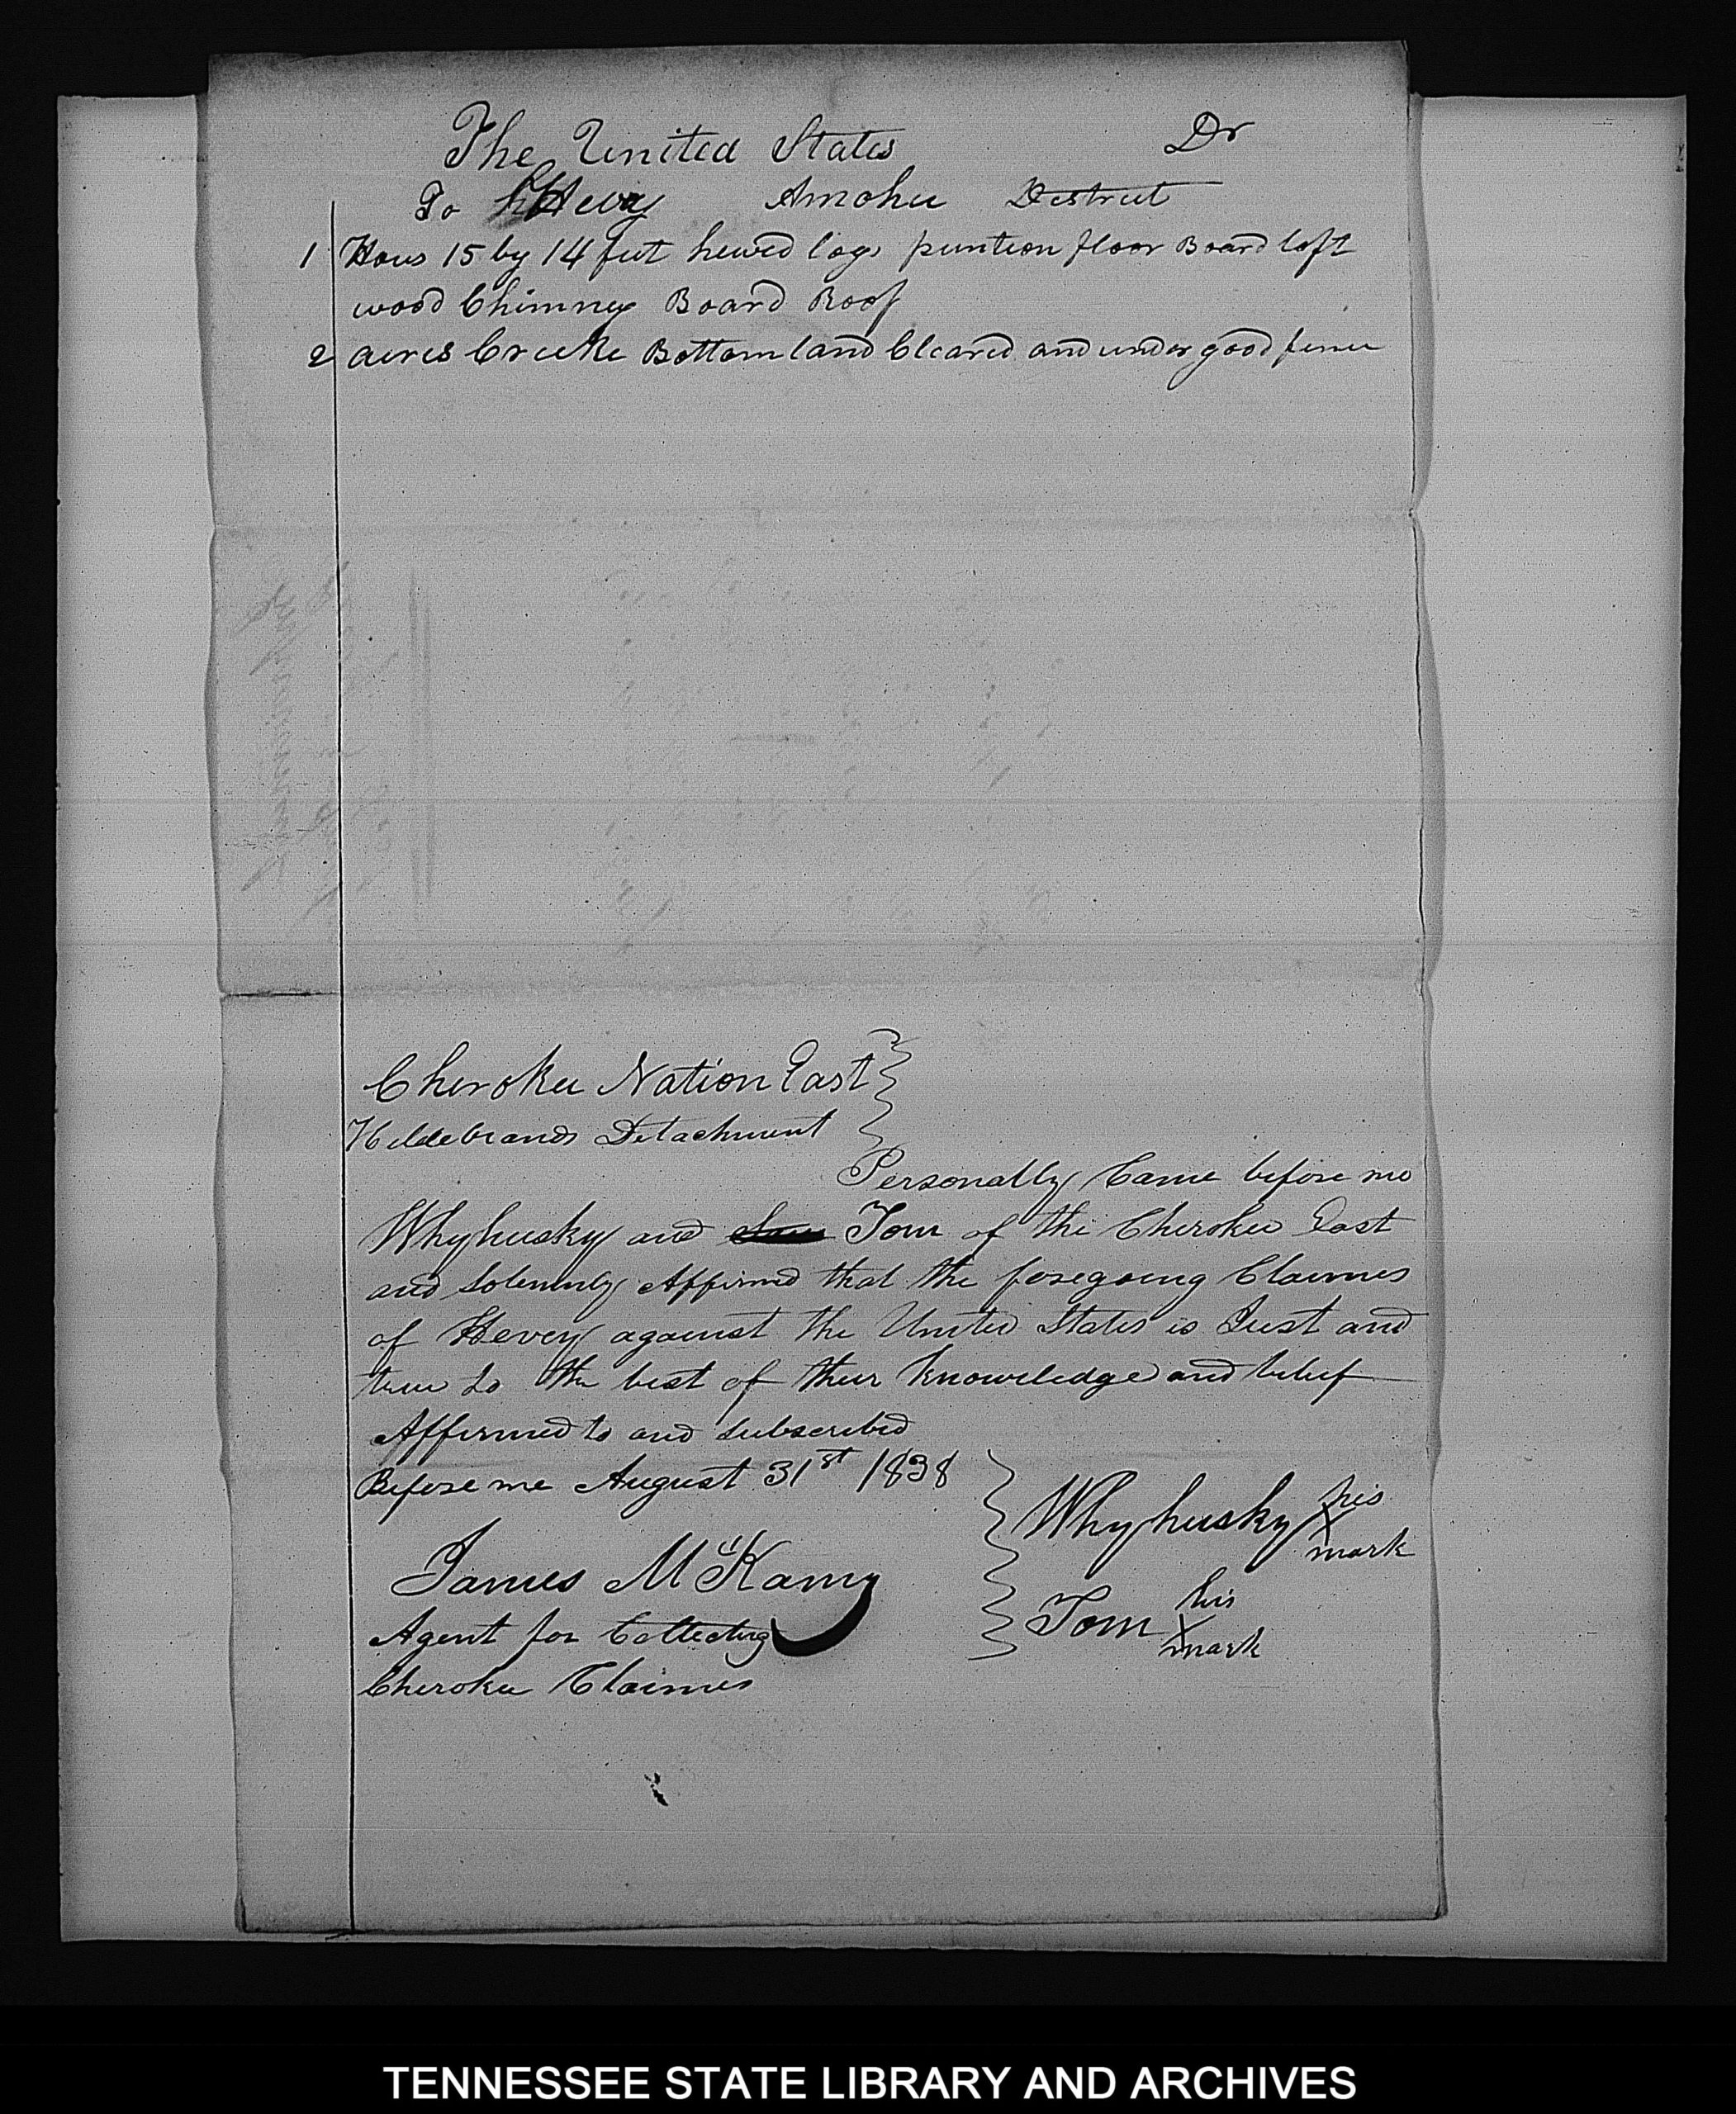 The United States Dr
To Hevy Amohee District
1 Hous 15 by 14 feet hewed logs puntion floor Board loft
wood Chimney Board Roof
2 acres Creeke Bottom land Cleared and under good fence
Cherokee Nation East
Hildebrands Detachment
Personally Came before me
Whyhusky and Tom of the Cherokee East
and Solemnly Affirmed that the foregoing Claimes
of Hevey against the United States is Just and
true to the best of their knowledge and belief
Affirmed to and subscribed
Before me August 31st 1838
Whyhusky his
X
mark
James McKamy
Tom his
X
mark
Agent for Collecting
Cherokee Claimes
TENNESSEE STATE LIBRARY AND ARCHIVES